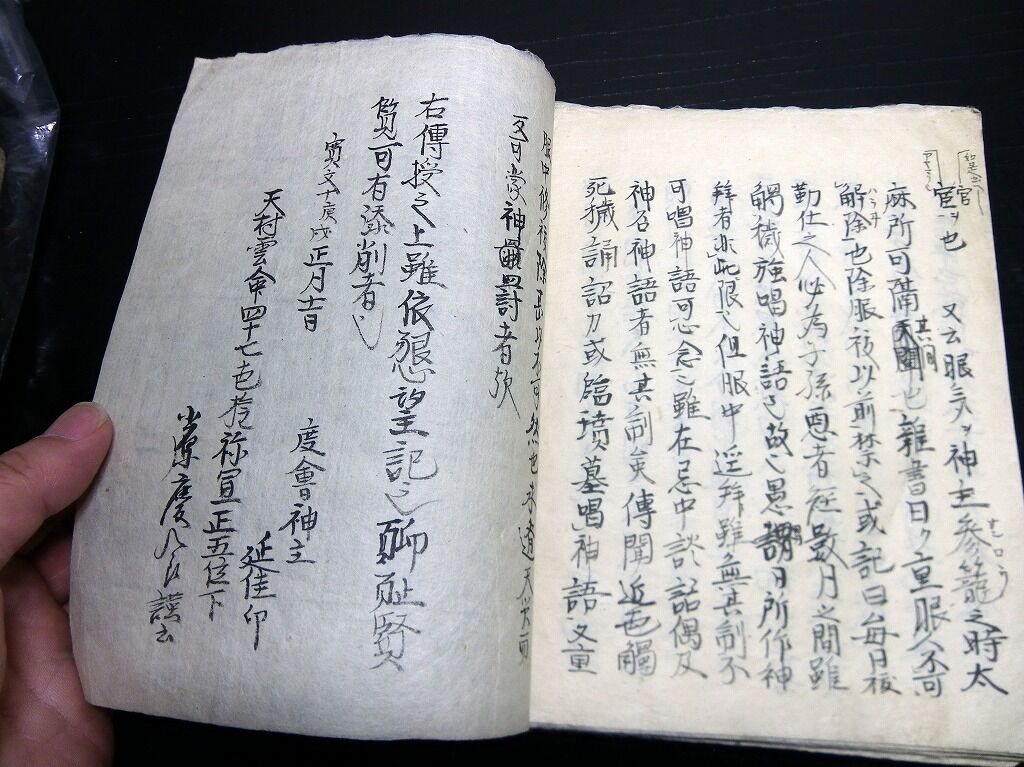 官ヲ也 又云服氣ヲ神主参籠之時太
麻所可備其間也雜書曰ク重服人不可
解除也除服夜以前禁之或記曰毎日祓
勤仕之人必為子孫患者歴數月之間雖
觸穢強唱神語之故之愚謂日所作神
拜者非此限但服中遥拜雖無其制不
可唱神語可心念之雖在忌中談話偶及
神名神語者無其制矣傳聞近也觸
死穢誦詔刀或臨墳墓唱神語又重
服中修祓除甚以不可然也
可蒙神罰者歟
右傳授之上雖依懇望記之聊耻賢
覧可有添削者也
寛文十庚戌正月十一日
度會神主
延佳印
天村雲命四十七世孫祢宜正五位下